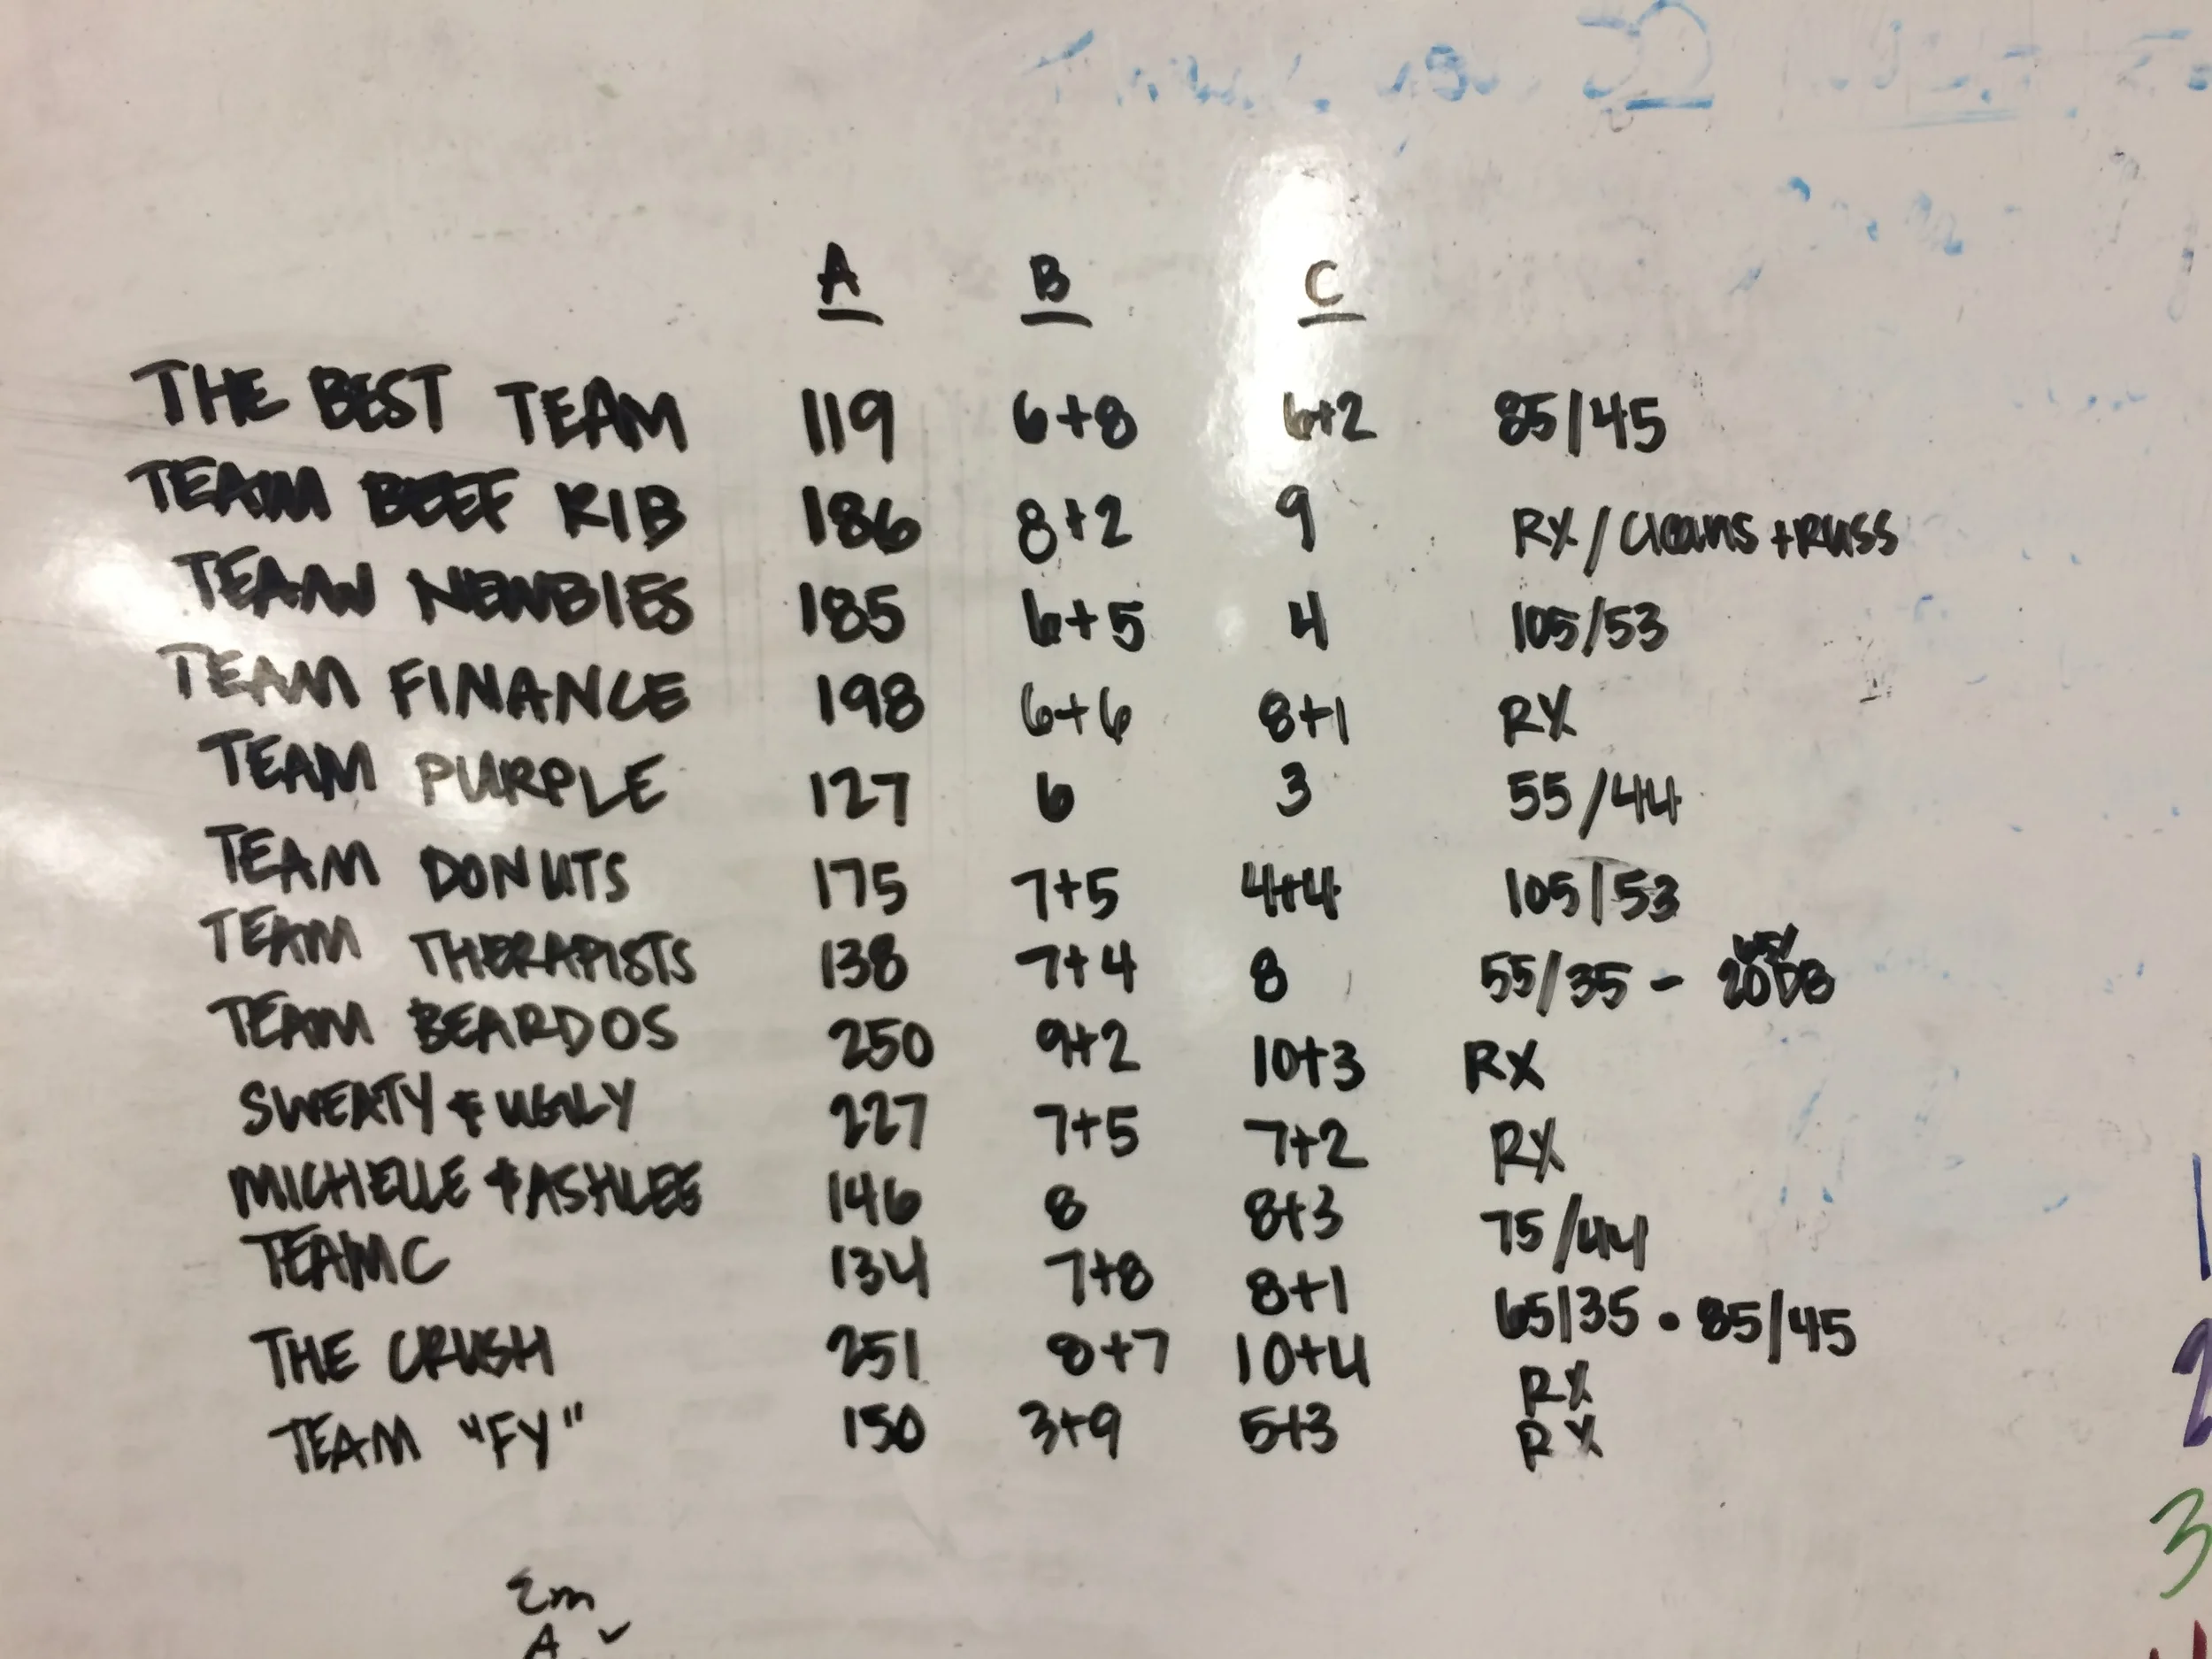 A B C
THE BEST TEAM 119 6+8 6+2 85/45
TEAM BEEF RIB 186 8+2 9 RX/Cleans+RUSS
TEAM NEWBIES 185 6+5 4 105/53
TEAM FINANCE 198 6+6 8+1 RX
TEAM PURPLE 127 6 3 55/44
TEAM DONUTS 175 7+5 4+4 105/53
TEAM THERAPISTS 138 7+4 8 55/35 -
TEAM BEARDOS 250 9+2 10+3 RX
SWEATY & UGLY 227 7+5 7+2 RX
MICHELLE & ASHLEE 146 8 8+3 75/44
TEAM C 134 7+8 8+1 65/35 • 85/45
THE CRUSH 251 8+7 10+4 RX
TEAM "FY" 150 3+9 5+3 RX
1
2
3
Em
A ✓